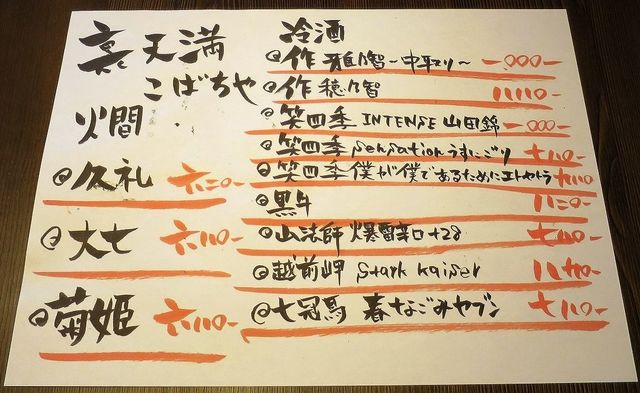 裏天満
こばちや
火間
久礼 六二〇-
大七 六八〇-
菊姫 六八〇-
冷酒
作 雅乃智~中取り~ 一、〇〇〇-
作 穂乃智 八八〇-
笑四季 INTENSE 山田錦 一、〇〇〇-
笑四季 Sensation うすにごり 七八〇-
笑四季 僕が僕であるために エトヤトラ
黒斗 八二〇-
山法師 爆雷辛口+28 七八〇-
越前岬 Stark Kaiser
七冠馬 春なごみヤブシ 七八〇-